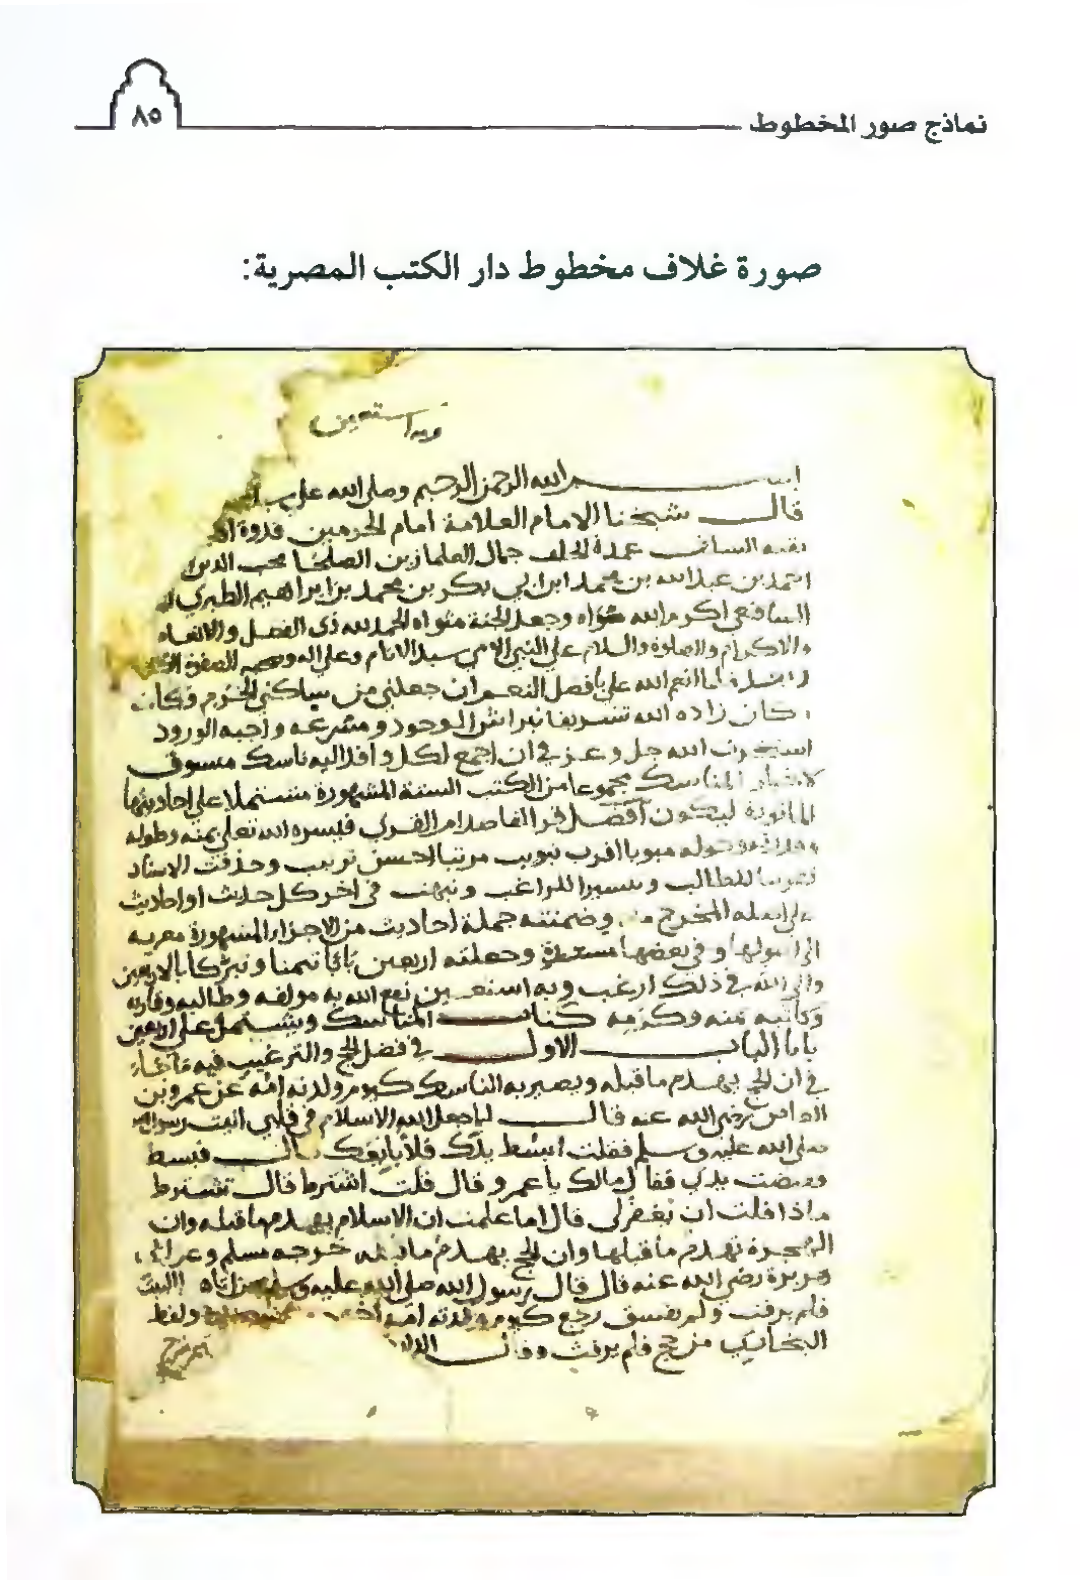 نماذج صور المخطوط
٨٥
صورة غلاف مخطوط دار الكتب المصرية:
وبه استعين
بسم الله الرحمن الرحيم وصلى الله على
قال شيخنا الامام العلامة امام الحرمين قدوة
بقية السلف عمدة الخلف جمال العلما زين الصلحا محب الدين
احمد بن عبدالله بن محمد ابن ابي بكر بن محمد بن ابراهيم الطبري
الشافعي اكرم الله مثواه وجعل الجنة مثواه الحمد لله ذى الفضل والانعام
والاكرام والصلوة والسلام على النبي الامي سيد الانام وعلى اله وصحبه الصفوة
لما انعم الله علي بافضل النعم ان جعلني من ساكني الحرم وكان
كان زاده الله تشريفا نبراس الوجود ومشرعه واجبه الورود
استخرت الله جل وعز في ان اجمع لكل وافد اليه ناسك مسوق
المناسك مجموعا من الكتب الستة المشهورة مشتملا على احاديثها
الماثورة ليكون افضل قرا لقاصد ام القرى فيسره الله تعلى بمنه وطوله
وحوله مبوبا اقرب تبويب مرتبا احسن ترتيب وحذفت الاسناد
للطالب وتيسيرا للراغب ونبهت في اخر كل حديث او احاديث
المخرج منه وضمنته جملة احاديث من الاجزاء المشهورة معزيه
الى اصولها وفي بعضها وجعلته اربعين بابا تيمنا وتبركا بالاربعين
والى الله في ذلك ارغب وبه استعين نفع الله به مولفه وطالبه وقارئه
وكاتبه بمنه وكرمه كتاب المناسك ويشتمل على اربعين
بابا الباب الاول في فضل الحج والترغيب فيه ما جاء
في ان الحج يهدم ما قبله ويصير به الناسك كيوم ولدته امه عن عمرو بن
العاص رضي الله عنه قال لما جعل الله الاسلام في قلبي اتيت رسول الله
صلى الله عليه وسلم فقلت ابسط يدك فلأبايعك قال فبسط
فقبضت يدي فقال مالك يا عمرو قال قلت اشترط قال تشترط
ماذا قلت ان يغفر لي قال اما علمت ان الاسلام يهدم ما قبله وان
الهجرة تهدم ما قبلها وان الحج يهدم ما قبله خرجه مسلم وعن ابي
هريرة رضي الله عنه قال قال رسول الله صلى الله عليه وسلم من اتى البيت
فلم يرفث ولم يفسق رجع كيوم ولدته امه ولفظ
البخاري من حج فلم يرفث وقال